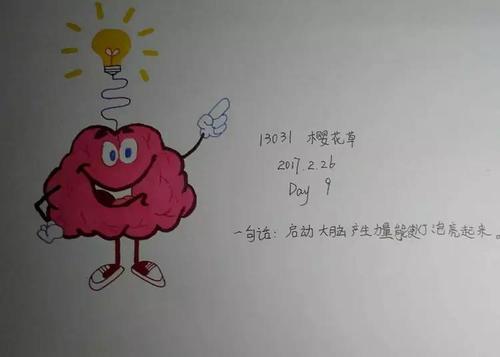 13031 樱花草
2017.2.26
Day 9
一句话：启动大脑产生力量能使灯泡亮起来。